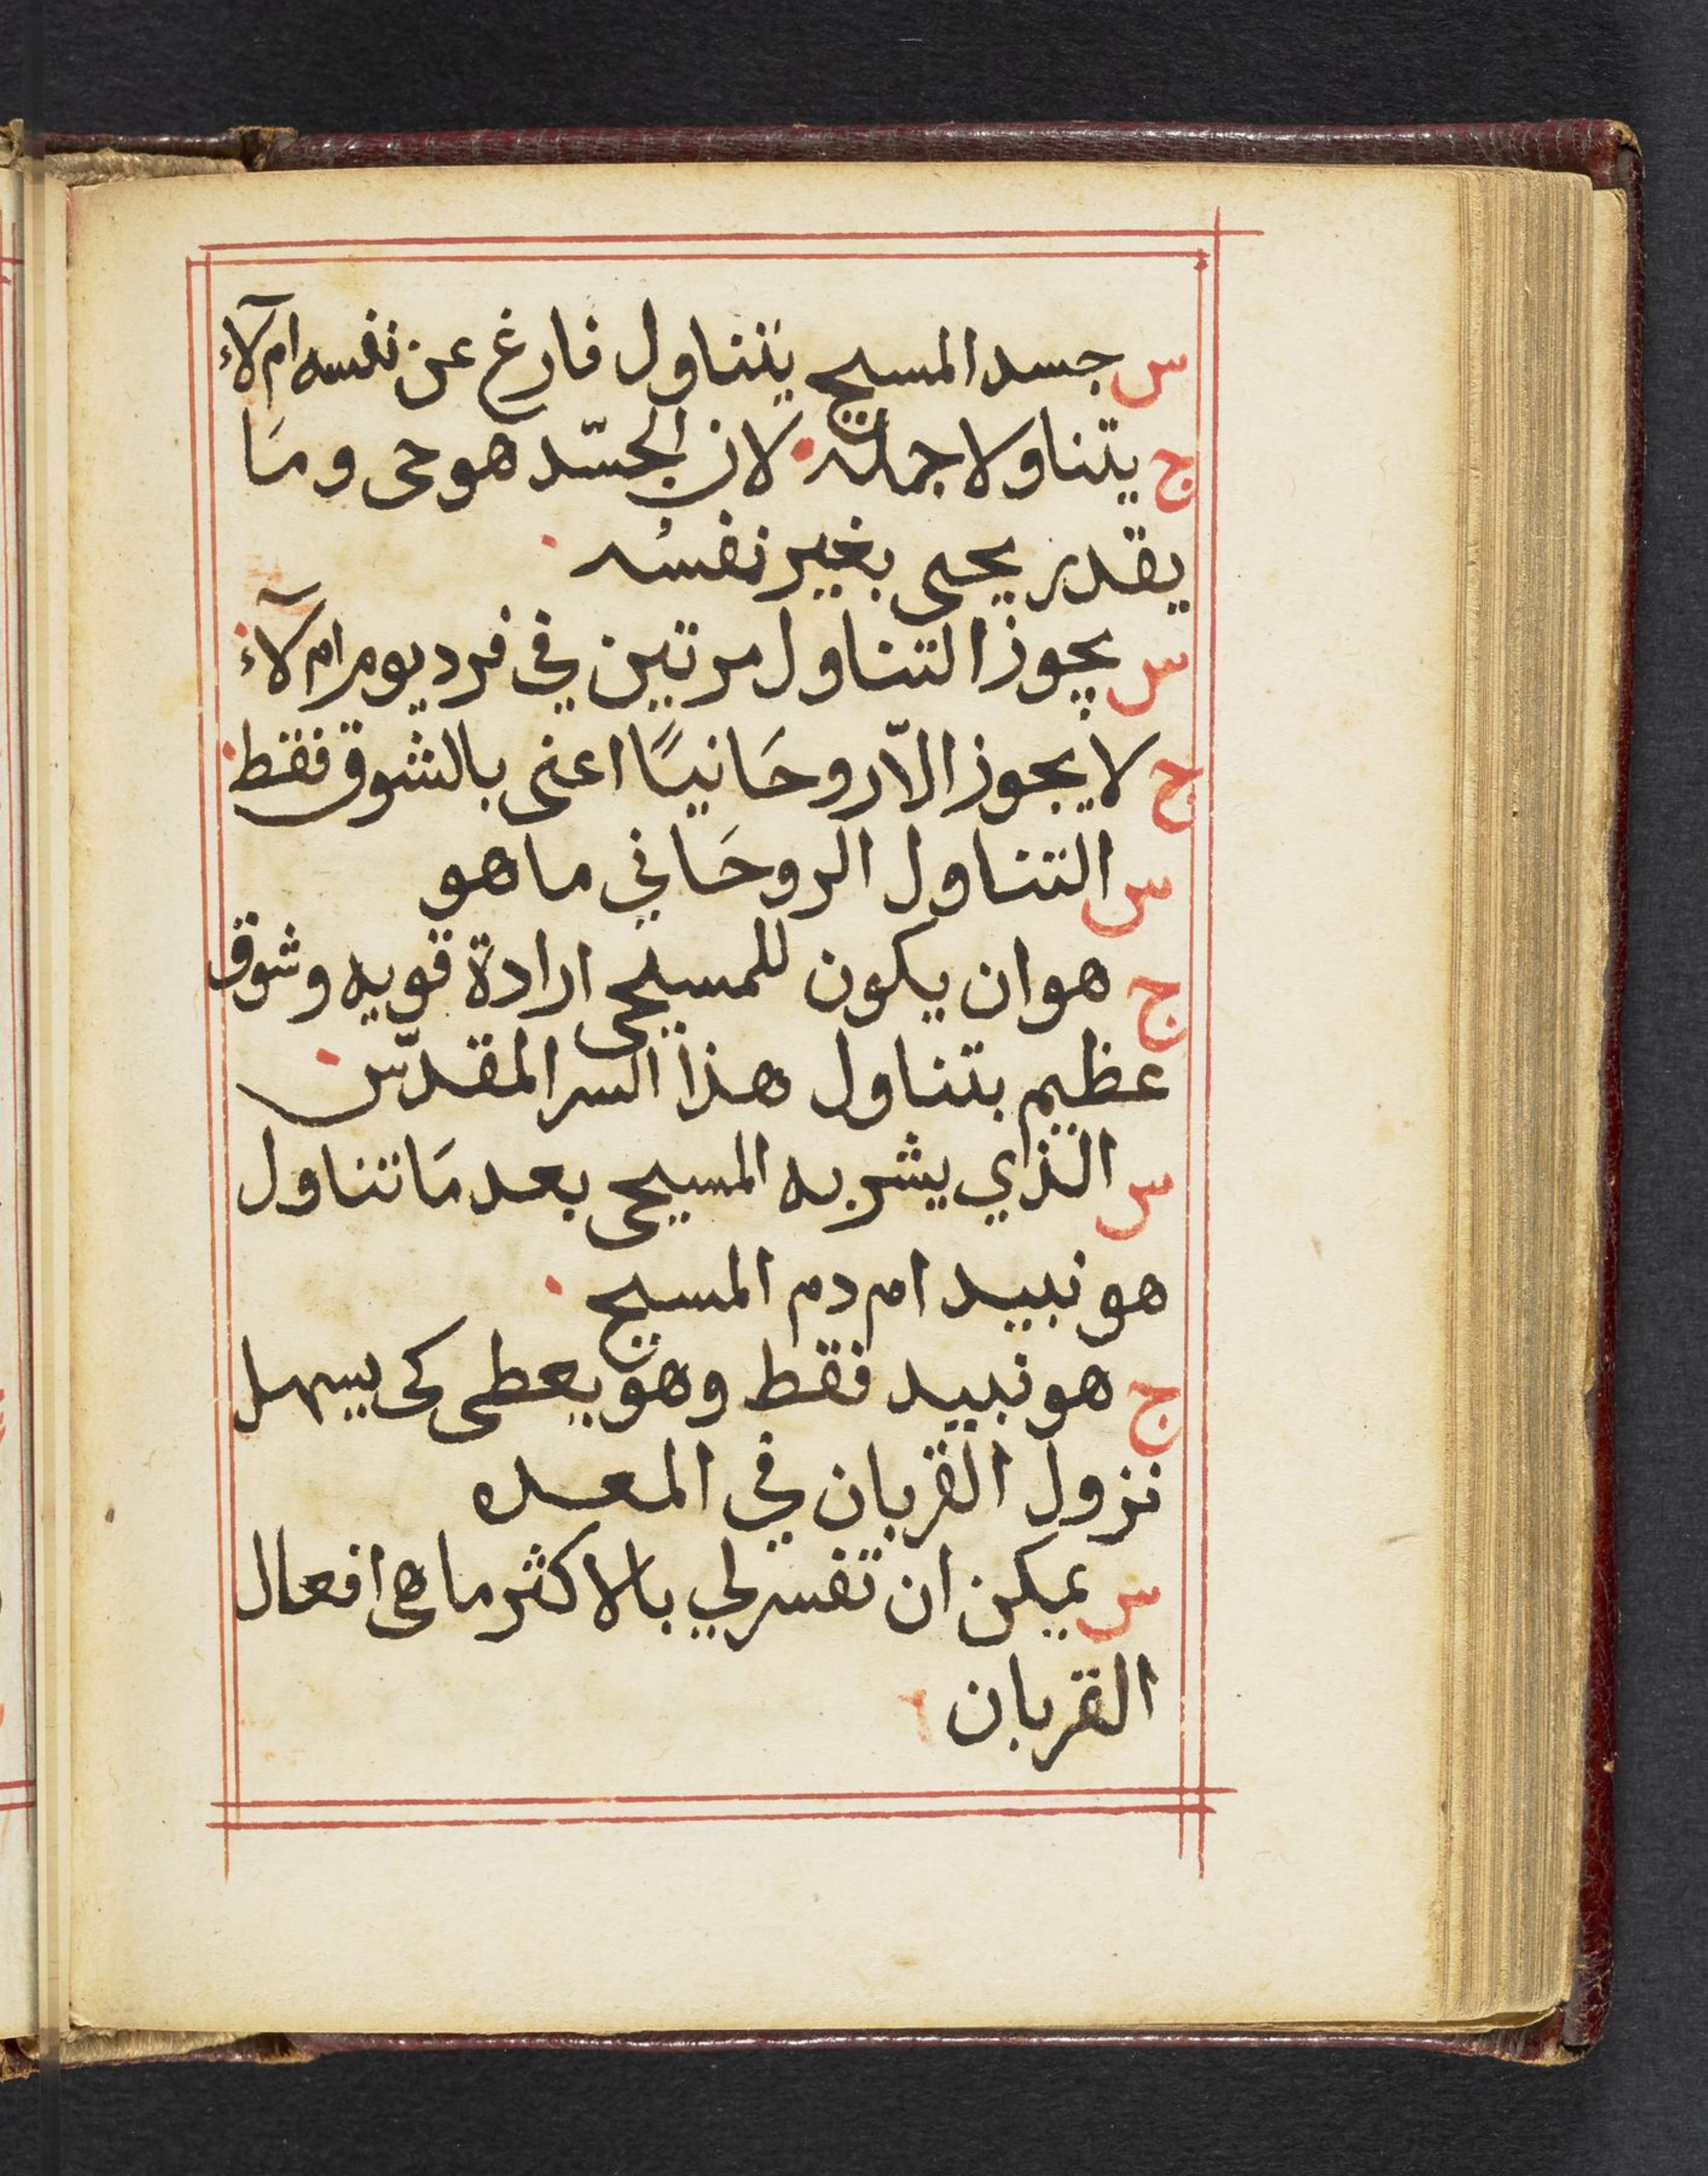 س جسد المسيح يتناول فارغ عن نفسه ام لآء
ج يتناولا جمله لان الجسّد هو حى ومَا
يقدر يحيى بغير نفسُه
س يجوز التناول مرتين في فرد يوم ام لآء
ج لا يجوز الاّ روحَانيًا اعنى بالشوق فقط
س التناول الروحَاني ما هو
ج هو ان يكون للمسيحى ارادة قويه وشوق
عظيم بتناول هذا السر المقدّس
س الذي يشربه المسيحى بعد مَا تناول
هو نبيد ام دم المسيح
ج هو نبيد فقط وهو يعطى كى يسهل
نزول القربان في المعده
س يمكن ان تفسر لي بالاكثر ما هى افعال
القربان